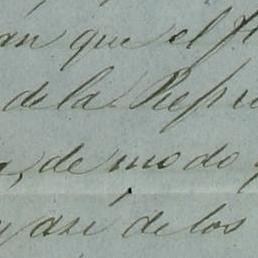 an que el
de la Repu
de modo
asi de los